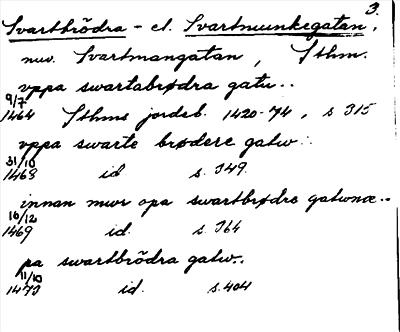 3.
Svartbrödra - el. Svartmunkegatan,
nuv. Svartmangatan, Sthm.
vppa swartabrødra gatu..
9/7 1464 Sthms jordeb. 1420-74, s 315
vppa swarte brødere gatw..
31/10 1468 id s. 349.
innan mwr opa swartbrødre gatwnæ..
10/12 1469 id. s. 364
pa swartbrödra gatw..
11/10 1473 id. s. 404